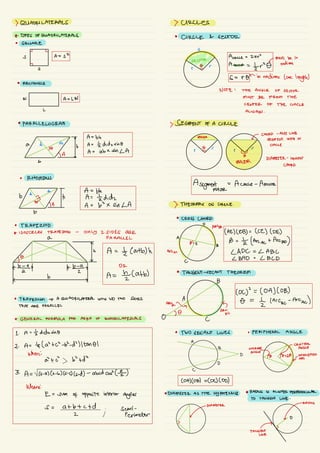 > QUADRILATERALS
TYPES OF QUADRILATERALS
• SQUARE
S
S
A = S²
• RECTANGLE
W
L
A = LW
• PARALLELOGRAM
a
h
b
A
A = bh
A = ½ d₁d₂ sinθ
A = ab sin∠A
• RHOMBUS
b
h
b
A
A = bh
A = ½ d₁d₂
A = b² sin∠A
• TRAPEZOID
• ISOSCELES TRAPEZOID - ONLY 2 SIDES ARE
PARALLEL
a
h
b-a
2
b-a
2
b
A = ½ (a+b)h
OR
A = h/2 (a+b)
• TRAPEZIUM → A QUADRILATERAL WITH NO TWO SIDES
THAT ARE PARALLEL
• GENERAL FORMULA FOR AREA OF QUADRILATERALS
1. A = ½ d₁d₂ sinθ
2. A = ¼ (a²+c²-b²-d²) |tanθ|
Where:
a²+c² > b²+d²
3. A = √(s-a)(s-b)(s-c)(s-d) - abcd cos²(E/2)
Where
E = sum of opposite interior angles
S = a+b+c+d / 2 ; Semi-
Perimeter
> CIRCLES
• CIRCLE & SECTOR
A circle = 
A sector = ½ r²θ
must be in
radians
S = rθ
in radians (arc length)
NOTE: THE ANGLE OF SECTOR
MUST BE FROM THE
CENTER OF THE CIRCLE
ALWAYS.
> SEGMENT OF A CIRCLE
CHORD - ANY LINE
CIRCLE
DIAMETER - LONGEST
CHORD
A segment = A circle - A
> THEOREMS ON CIRCLE
• CROSS CHORD
A
B
C
D
(AE)(EB) = (CE)(ED)
θ = ½ (Arc AC + Arc BD)
∠ADC = ∠ABC
∠BAD = ∠BCD
• TANGENT-SECANT THEOREM
A
B
C
O
(OC)² = (OA)(OB)
θ = ½ (Arc BC - Arc AC)
• TWO SECANT LINES
A
B
C
D
(OA)(OB) = (OC)(OD)
• PERIPHERAL ANGLE
CENTRAL
ANGLE
INSCRIBED
ANGLE
• DIAMETER AS THE HYPOTENUSE
DIAMETER
• RADIUS IS ALWAYS PERPENDICULAR
TO TANGENT LINE
RADIUS
TANGENT
LINE